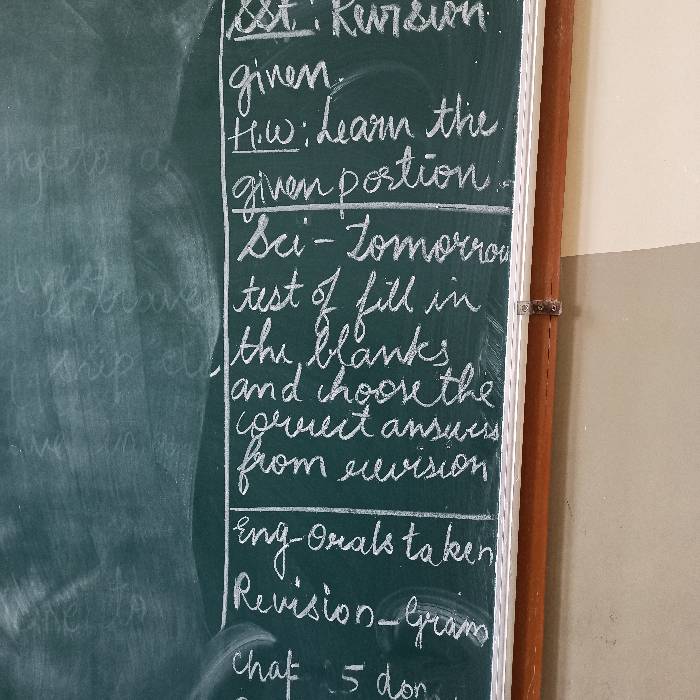 SSt : Revision
given.
H.W : Learn the
given portion.
Sci - Tomorrow
test of fill in
the blanks
and choose the
correct answers
from revision
Eng - Orals taken
Revision - Gram
Chap 5 don